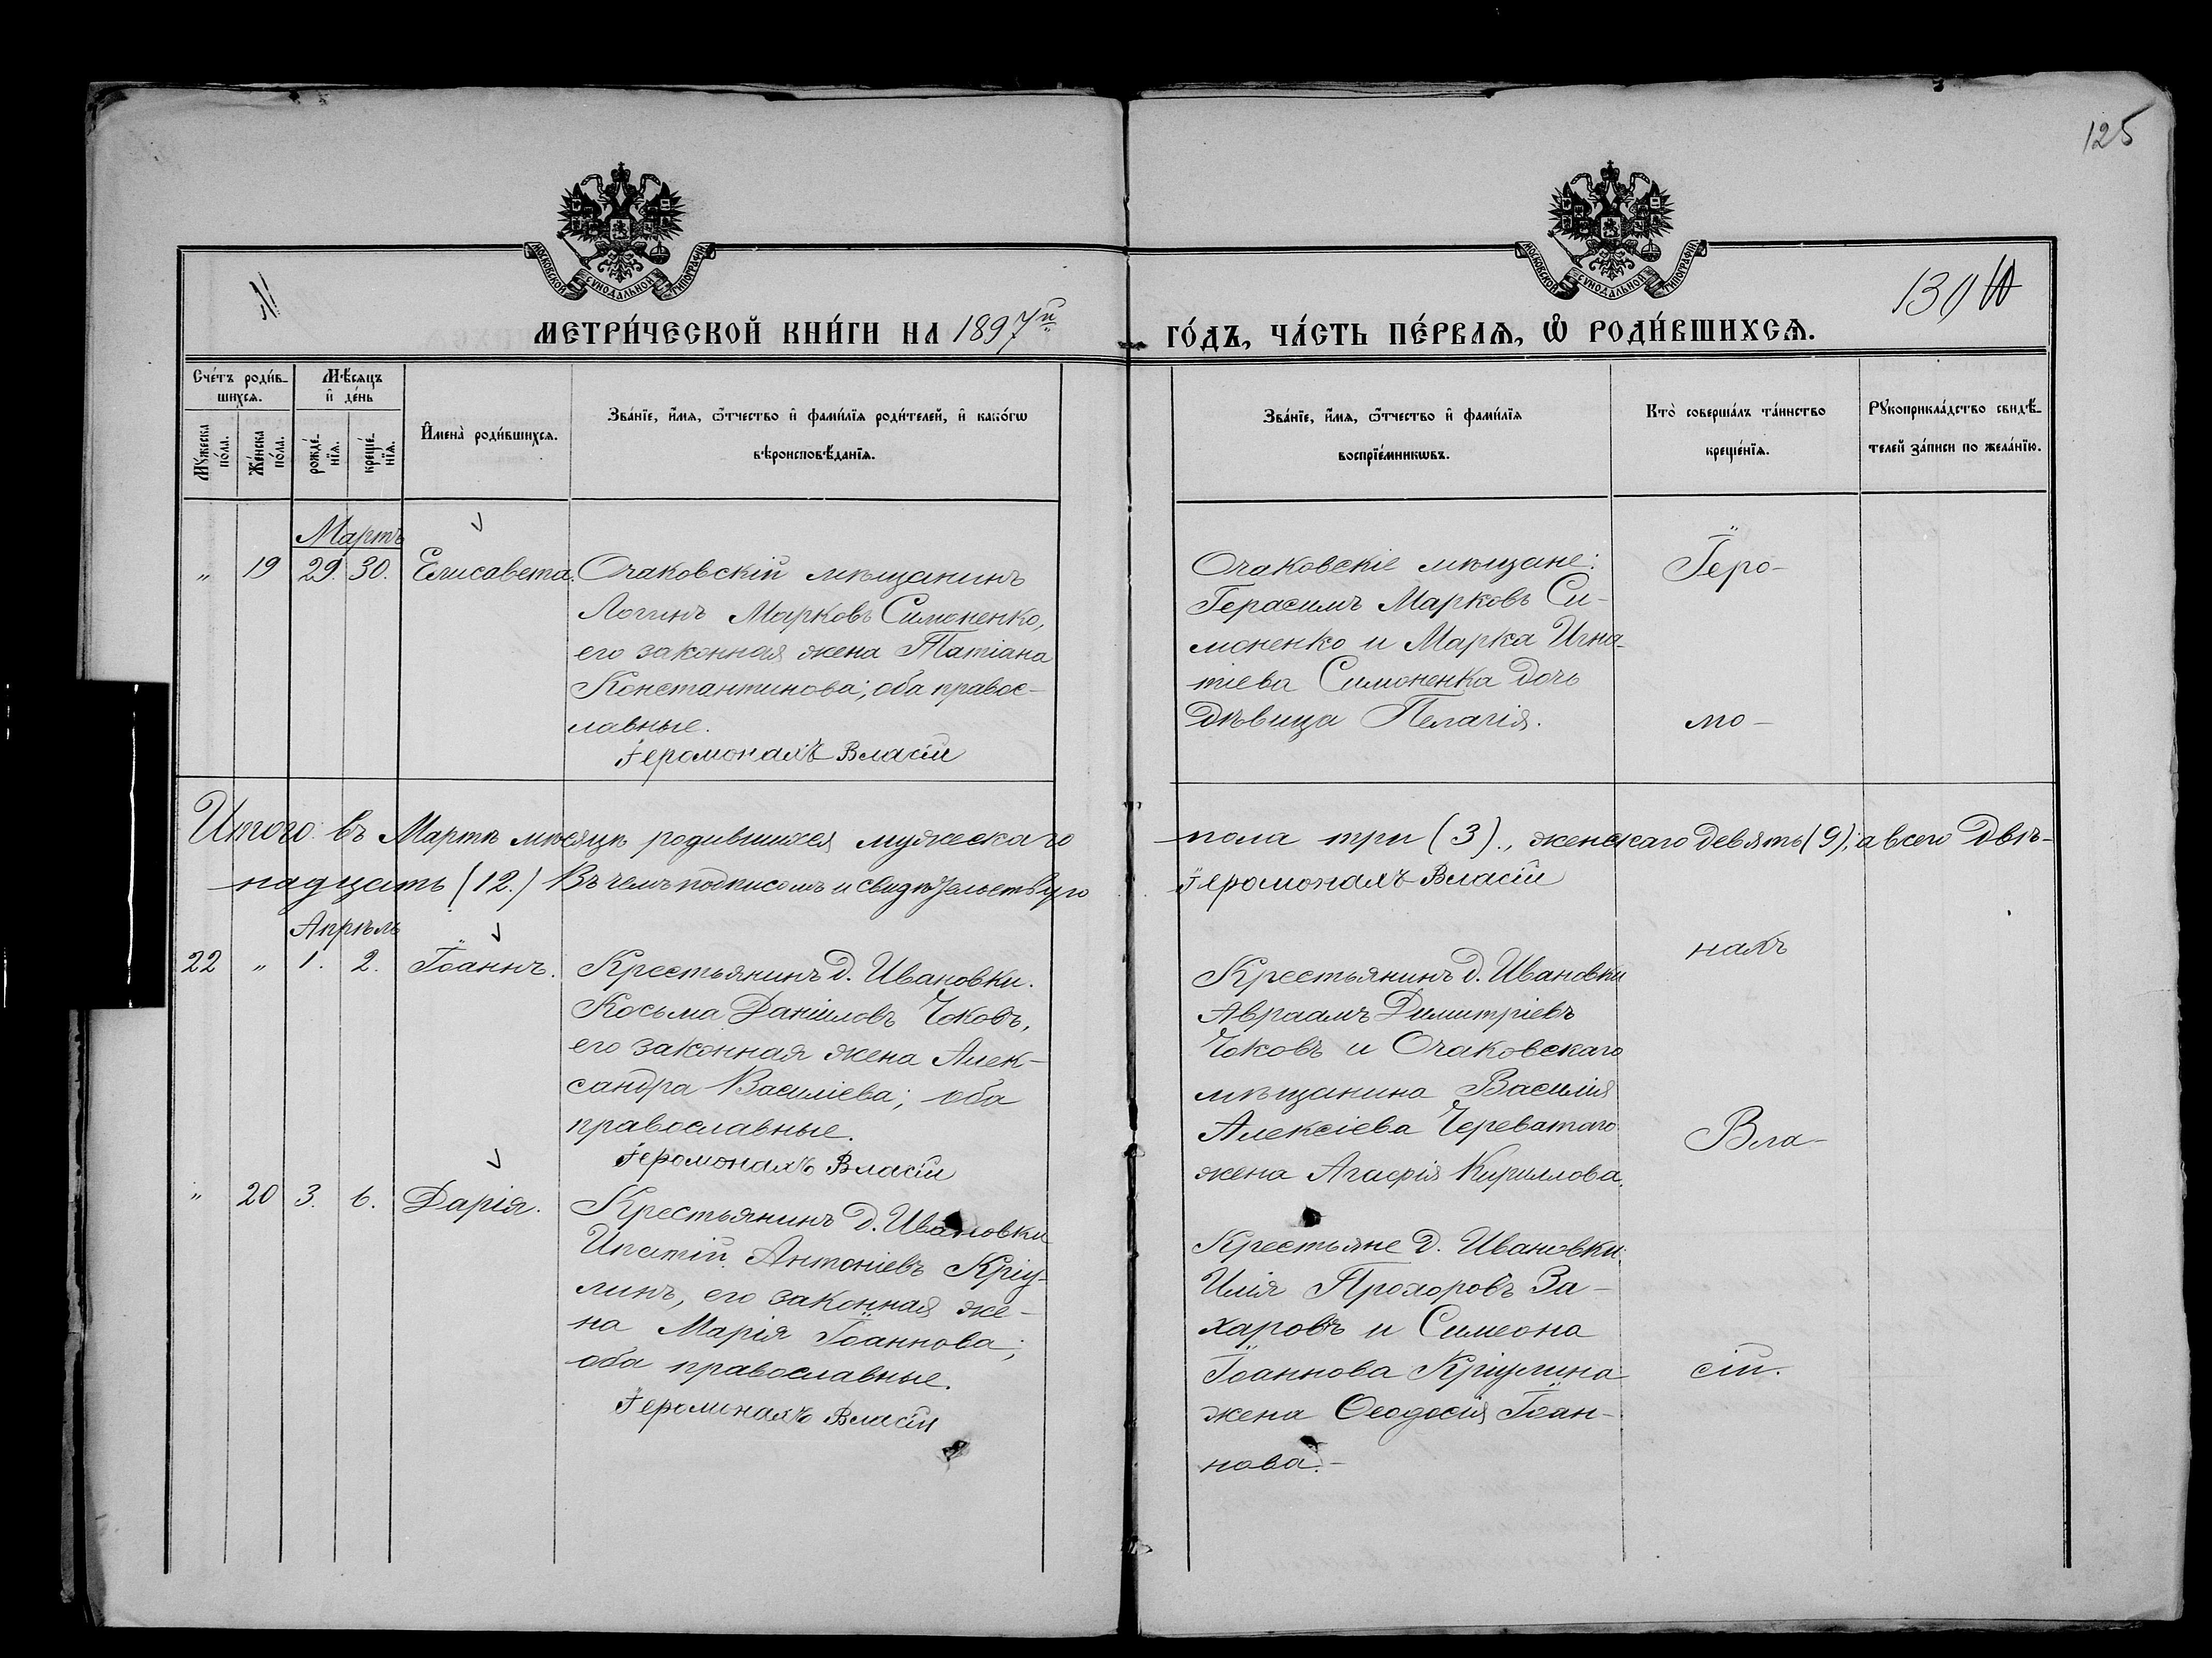 125
МОСКОВСКОЙ СѴНОДАЛЬНОЙ ТИПОГРАФІИ
МОСКОВСКОЙ СѴНОДАЛЬНОЙ ТИПОГРАФІИ
МЕТРИ́ЧЕСКОЙ КНИ́ГИ НА 1897й
ГО́ДЪ, ЧА́СТЬ ПЕ́РВАѦ, Ѡ҆ РОДИ́ВШИХСѦ.
130
Сче́тъ роди́в-
шихсѧ.
Мꙋжеска по́ла.
Же́нска по́ла.
Мѣ́сѧцъ
и҆ де́нь
рожде́-
нїѧ.
креще́-
нїѧ.
И҆мена̀ роди́вшихсѧ.
Зва́нїе, и҆́мѧ, ѻ҆́тчество и҆ фами́лїѧ роди́телей, и҆ како́гѡ
вѣроисповѣ́данїѧ.
Зва́нїе, и҆́мѧ, ѻ҆́тчество и҆ фами́лїѧ
воспрїе́мникѡвъ.
Кто̀ соверша́лъ та́инство
креще́нїѧ.
Рꙋкоприкла́дство свидѣ́-
телей за́писи по жела́нїю.
Мартъ
" 19 29. 30. Елисавета.
Очаковскій мѣщанинъ
Логинъ Марковъ Симоненко,
его законная жена Татіана
Константинова; оба правос-
лавные.
Іеромонахъ Власій
Очаковскіе мѣщане:
Герасимъ Марковъ Си-
моненко и Марка Игна-
тіева Симоненка дочь
дѣвица Пелагія.
Іеро-
мо-
Итого въ Мартѣ мѣсяцѣ родившихся мужескаго пола три (3)., женскаго девять (9); а всего двѣ-
надцать (12.) Въ чемъ подписомъ и свидѣтельствую Іеромонахъ Власій
Апрѣль
22 " 1. 2. Іоаннъ.
Крестьянинъ д. Ивановки.
Косьма Даніиловъ Чоковъ,
его законная жена Алек-
сандра Василіева; оба
православные.
Іеромонахъ Власій
Крестьянинъ д. Ивановки
Авраамъ Димитріевъ
Чоковъ и Очаковскаго
мѣщанина Василія
Алексіева Череватаго
жена Агафія Кириллова.
нахъ
Вла-
" 20 3. 6. Дарія.
Крестьянинъ д. Ивановки
Ипатій Антоніевъ Кріу-
линъ, его законная же-
на Марія Іоаннова;
оба православные.
Іеромонахъ Власій
Крестьяне д. Ивановки:
Илія Прохоровъ За-
харовъ и Симеона
Іоаннова Кріулина
жена Ѳеодосія Іоан-
нова.-
сій.